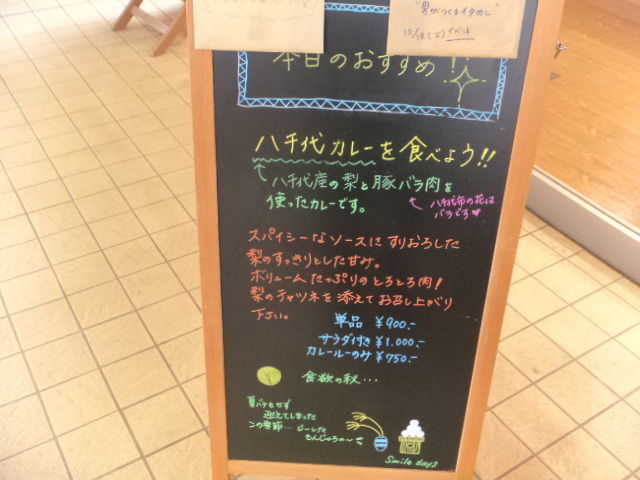 "男がつくるイタめし"
10/18(火)イベント
本日のおすすめ!
八千代カレーを食べよう!!
八千代産の梨と豚バラ肉を
使ったカレーです。
八千代市の花は
バラです♥
スパイシーなソースにすりおろした
梨のすっきりとした甘み。
ボリュームたっぷりのとろとろ肉!
梨のチャツネを添えてお召し上がり
下さい。
単品 ¥900.-
サラダ付き ¥1.000.-
カレールーのみ ¥750.-
食欲の秋...
夏バテもせず
迎えてしまった
この季節... どーした
もんじゃろの〜
Smile days